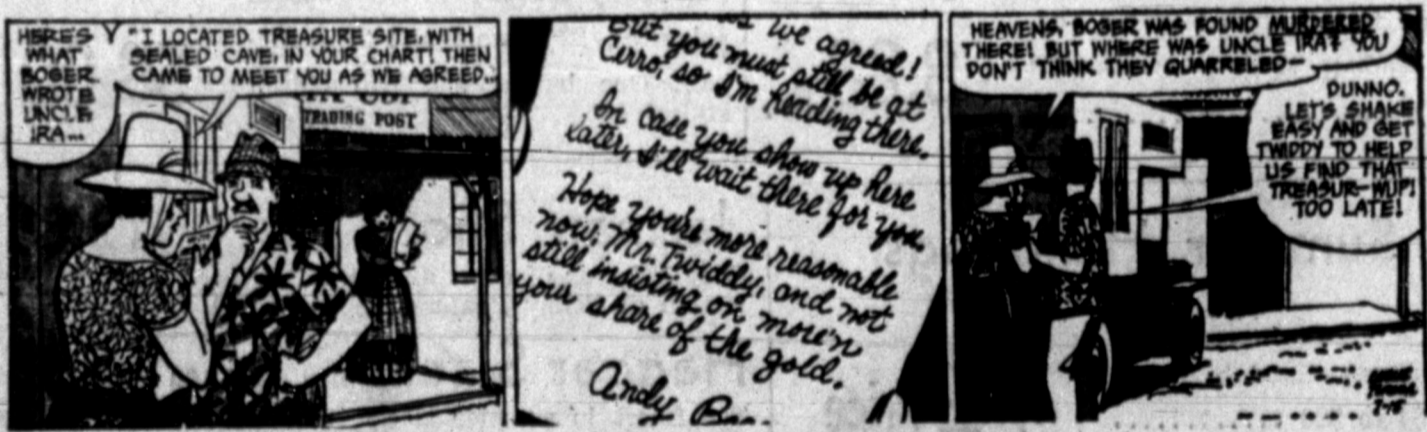 HERE'S
WHAT
BOGER
WROTE
UNCLE
IRA...
"I LOCATED TREASURE SITE, WITH
SEALED CAVE, IN YOUR CHART! THEN
CAME TO MEET YOU AS WE AGREED...
TRADING POST
we agreed!
But you must still be at
Cerro, so I'm heading there.
In case you show up here
later, I'll wait there for you.
Hope you're more reasonable
now, Mr. Twiddy, and not
still insisting on more'n
your share of the gold.
Andy
HEAVENS, BOGER WAS FOUND MURDERED
THERE! BUT WHERE WAS UNCLE IRA? YOU
DON'T THINK THEY QUARRELED—
DUNNO.
LET'S SHAKE
EASY AND GET
TWIDDY TO HELP
US FIND THAT
TREASUR-WUP!
TOO LATE!
7-15